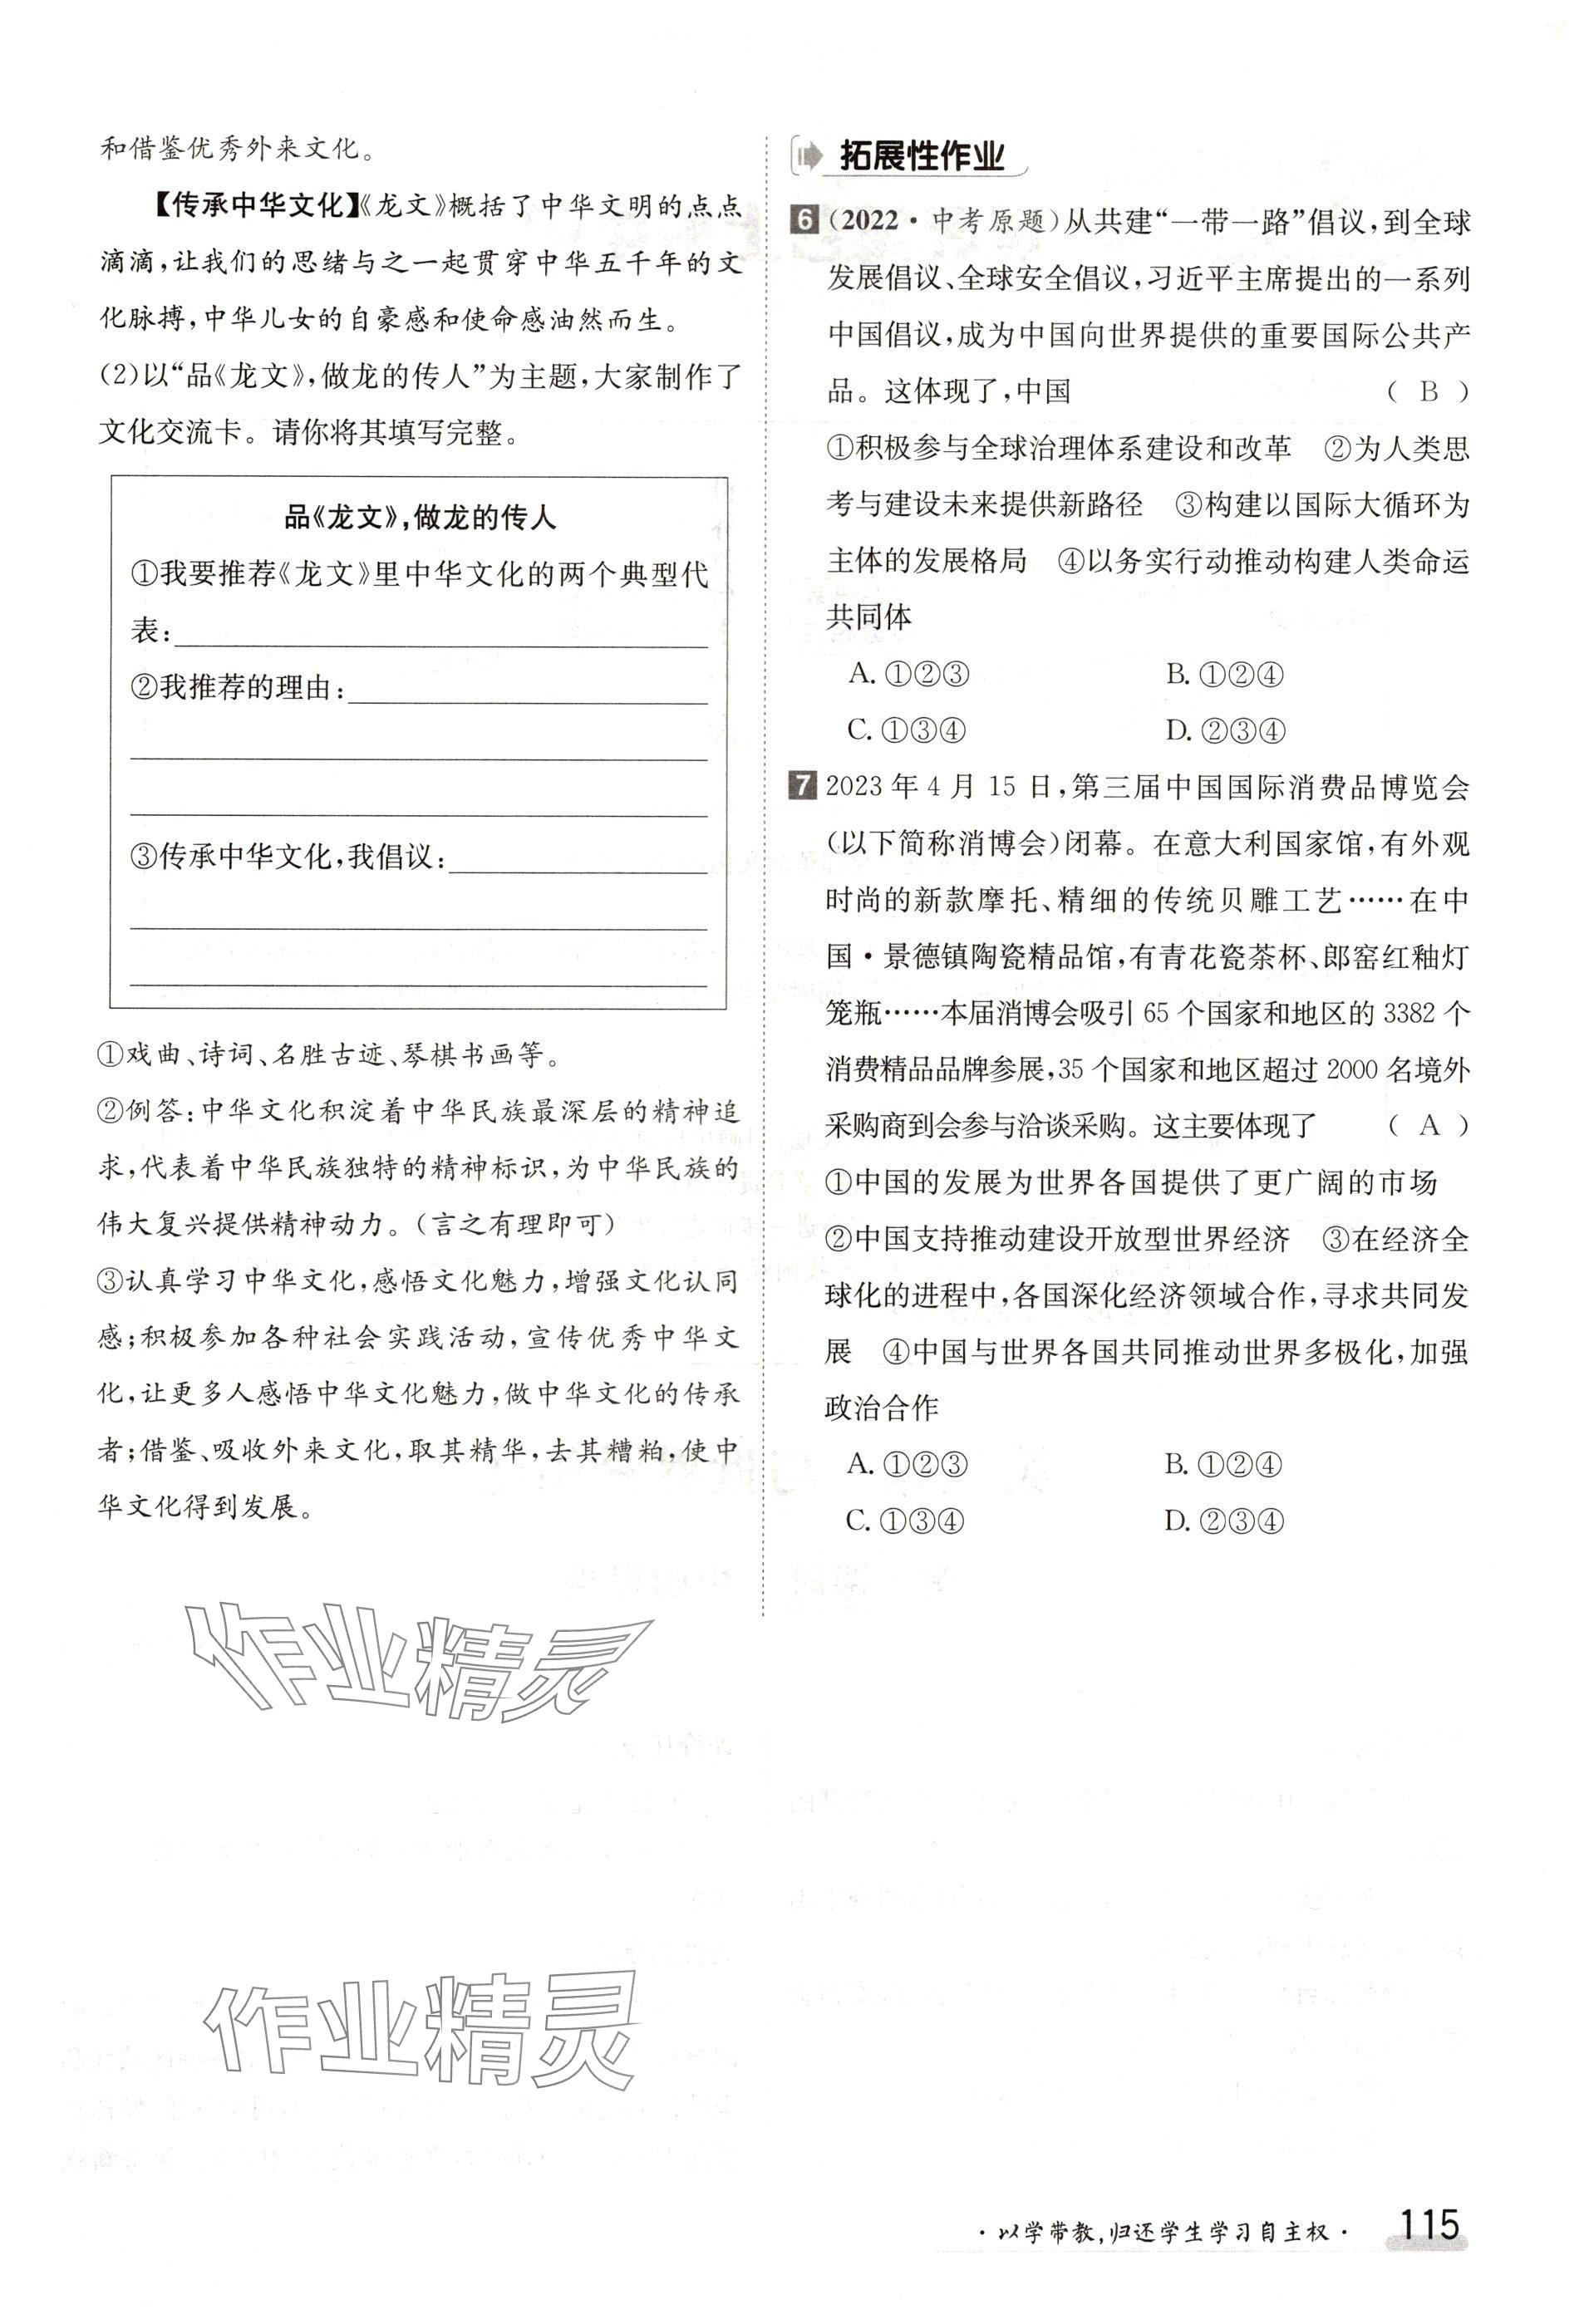 和借鉴优秀外来文化。
【传承中华文化】《龙文》概括了中华文明的点点
滴滴,让我们的思绪与之一起贯穿中华五千年的文
化脉搏,中华儿女的自豪感和使命感油然而生。
(2)以“品《龙文》,做龙的传人”为主题,大家制作了
文化交流卡。请你将其填写完整。
品《龙文》,做龙的传人
①我要推荐《龙文》里中华文化的两个典型代
表:
②我推荐的理由:
③传承中华文化,我倡议:
①戏曲、诗词、名胜古迹、琴棋书画等。
②例答:中华文化积淀着中华民族最深层的精神追
求,代表着中华民族独特的精神标识,为中华民族的
伟大复兴提供精神动力。(言之有理即可)
③认真学习中华文化,感悟文化魅力,增强文化认同
感;积极参加各种社会实践活动,宣传优秀中华文
化,让更多人感悟中华文化魅力,做中华文化的传承
者;借鉴、吸收外来文化,取其精华,去其糟粕,使中
华文化得到发展。
作业精灵
作业精灵
拓展性作业
6 (2022·中考原题)从共建“一带一路”倡议,到全球
发展倡议、全球安全倡议,习近平主席提出的一系列
中国倡议,成为中国向世界提供的重要国际公共产
品。这体现了,中国 ( B )
①积极参与全球治理体系建设和改革 ②为人类思
考与建设未来提供新路径 ③构建以国际大循环为
主体的发展格局 ④以务实行动推动构建人类命运
共同体
A. ①②③ B. ①②④
C. ①③④ D. ②③④
7 2023 年 4 月 15 日,第三届中国国际消费品博览会
(以下简称消博会)闭幕。在意大利国家馆,有外观
时尚的新款摩托、精细的传统贝雕工艺……在中
国·景德镇陶瓷精品馆,有青花瓷茶杯、郎窑红釉灯
笼瓶……本届消博会吸引 65 个国家和地区的 3382 个
消费精品品牌参展,35 个国家和地区超过 2000 名境外
采购商到会参与洽谈采购。这主要体现了 ( A )
①中国的发展为世界各国提供了更广阔的市场
②中国支持推动建设开放型世界经济 ③在经济全
球化的进程中,各国深化经济领域合作,寻求共同发
展 ④中国与世界各国共同推动世界多极化,加强
政治合作
A. ①②③ B. ①②④
C. ①③④ D. ②③④
·以学带教,归还学生学习自主权· 115